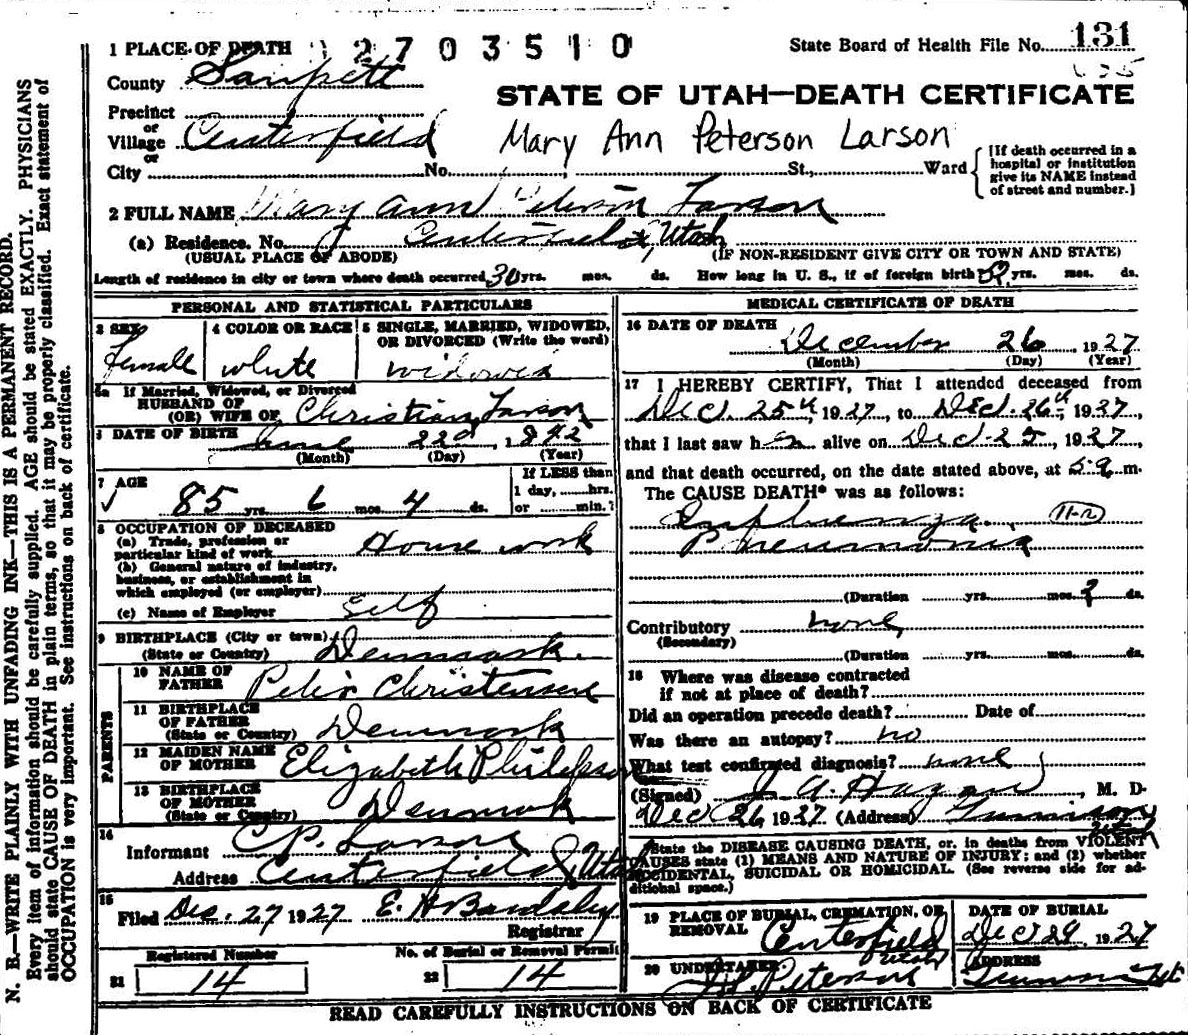 1 PLACE OF DEATH 2703510 State Board of Health File No. 131
County Sanpete
STATE OF UTAH—DEATH CERTIFICATE
Precinct
or
Village Centerfield Mary Ann Peterson Larson
or
City No. St., Ward
[If death occurred in a hospital or institution give its NAME instead of street and number.]
2 FULL NAME Mary Ann Peterson Larson
(a) Residence. No. Centerfield, Utah
(USUAL PLACE OF ABODE) (IF NON-RESIDENT GIVE CITY OR TOWN AND STATE)
Length of residence in city or town where death occurred 30 yrs. mos. ds. How long in U. S., if of foreign birth? yrs. mos. ds.
PERSONAL AND STATISTICAL PARTICULARS
3 SEX Female
4 COLOR OR RACE white
5 SINGLE, MARRIED, WIDOWED, OR DIVORCED (Write the word) widowed
5a If Married, Widowed, or Divorced
HUSBAND OF
(OR) WIFE OF Christian Larson
DATE OF BIRTH June 22d, 1842
(Month) (Day) (Year)
7 AGE 85 yrs. 6 mos. 4 ds.
If LESS than
1 day, hrs.
or min.?
8 OCCUPATION OF DECEASED
(a) Trade, profession or
particular kind of work House work
(b) General nature of industry,
business, or establishment in
which employed (or employer)
(c) Name of Employer Self
9 BIRTHPLACE (City or town)
(State or Country) Denmark.
PARENTS
10 NAME OF
FATHER Peter Christensen
11 BIRTHPLACE
OF FATHER
(State or Country) Denmark
12 MAIDEN NAME
OF MOTHER Elizabeth
13 BIRTHPLACE
OF MOTHER
(State or Country) Denmark
14
Informant C. P. Larson
Address Centerfield, Utah
15
Filed Dec. 27 1927 E. H. Bardsley
Registrar
Registered Number No. of Burial or Removal Permit
21 14 22 14
MEDICAL CERTIFICATE OF DEATH
16 DATE OF DEATH December 26, 1927
(Month) (Day) (Year)
17 I HEREBY CERTIFY, That I attended deceased from
Dec. 25th, 1927, to Dec. 26th, 1927,
that I last saw her alive on Dec. 25, 1927,
and that death occurred, on the date stated above, at 5 a m.
The CAUSE DEATH* was as follows:
Influenza. 11-a
Pneumonia
(Duration yrs. mos. 2 ds.
Contributory none
(Secondary)
(Duration yrs. mos. ds.
18 Where was disease contracted
if not at place of death?
Did an operation precede death? Date of
Was there an autopsy? no
What test confirmed diagnosis? none
(Signed) J. A. Hagan, M. D.
Dec 26, 1927 (Address) Gunnison Utah
State the DISEASE CAUSING DEATH, or, in deaths from VIOLENT
CAUSES state (1) MEANS AND NATURE OF INJURY; and (2) whether
ACCIDENTAL, SUICIDAL OR HOMICIDAL. (See reverse side for ad-
ditional space.)
19 PLACE OF BURIAL, CREMATION, OR
REMOVAL Centerfield Utah
DATE OF BURIAL
Dec 29 1927
20 UNDERTAKER Peterson
ADDRESS
Gunnison Ut
READ CAREFULLY INSTRUCTIONS ON BACK OF CERTIFICATE
N. B.—WRITE PLAINLY WITH UNFADING INK—THIS IS A PERMANENT RECORD.
Every item of information should be carefully supplied. AGE should be stated EXACTLY. PHYSICIANS
should state CAUSE OF DEATH in plain terms, so that it may be properly classified. Exact statement of
OCCUPATION is very important. See instructions on back of certificate.